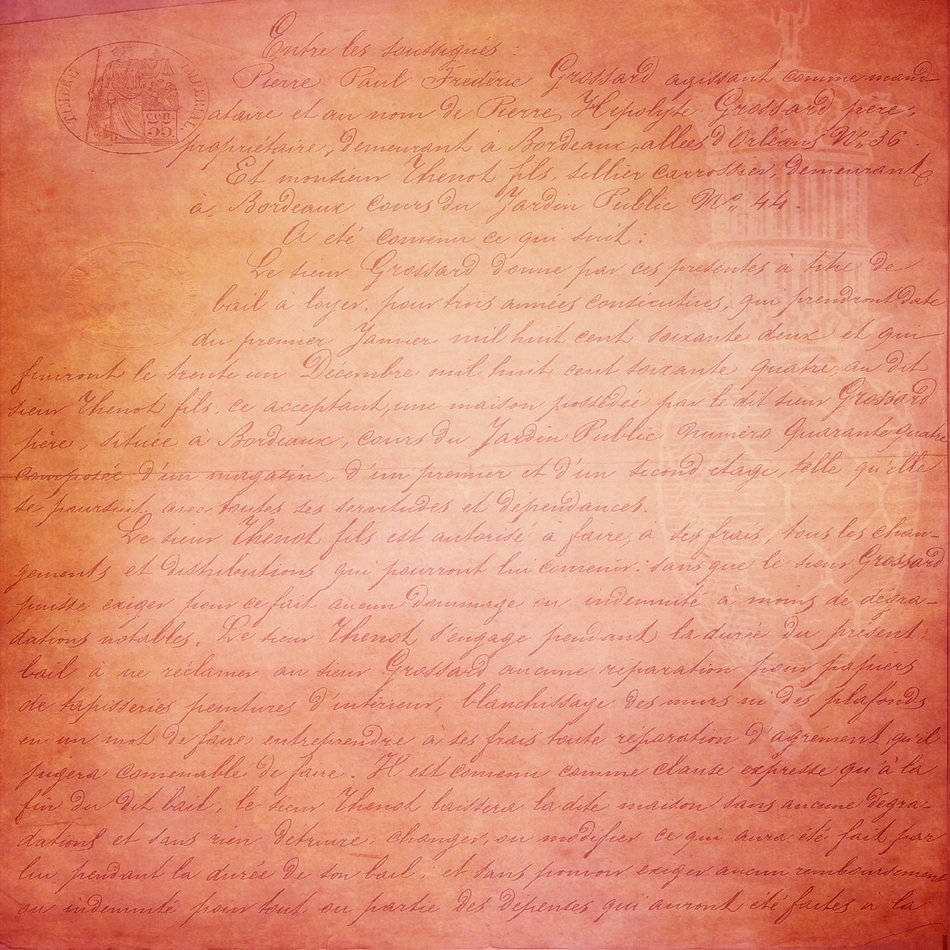 Entre les soussignés :
Pierre Paul Frédéric Grossard agissant comme mand-
ataire et au nom de Pierre Hipolyte Grossard père,
TIMBRE IMPERIAL
50 C.
propriétaire, demeurant à Bordeaux, allées d'Orléans No. 36
Et monsieur Thenot fils, sellier carrossier, demeurant
à Bordeaux cours du Jardin Public No. 44.
A été convenu ce qui suit :
Le sieur Grossard donne par ces présentes a titre de
bail à loyer, pour trois années consécutives, qui prendront date
du premier Janvier mil huit cent soixante deux et qui
finiront le trente un Decembre mil huit cent soixante quatre, au dit
sieur Thenot fils, ce acceptant, une maison possédée par le dit sieur Grossard
père, située à Bordeaux, cours du Jardin Public numéro quarante quatre
composée d'un magasin, d'un premier et d'un second etage, telle qu'elle
se poursuit, avec toutes ses servitudes et dépendances.
Le sieur Thenot fils est autorisé à faire, a ses frais, tous les chan-
gements et distributions qui pourront lui convenir. sans que le sieur Grossard
puisse exiger pour ce fait aucun dommage ou indemnité à moins de dégra-
dations notables. Le sieur Thenot s'engage pendant la durée du présent
bail à ne réclamer au sieur Grossard aucune reparation pour papiers
de tapisseries peintures d'intérieur, blanchissage des murs ni des plafonds
en un mot de faire entreprendre à ses frais toute réparation d'agrément, qu'il
jugera convenable de faire. Il est convenu comme clause expresse qu'à la
fin du dit bail, le sieur Thenot laissera la dite maison sans aucune dégra-
dations et sans rien détruire, changer, ou modifier ce qui aura été fait par
lui pendant la durée de son bail, et sans pouvoir exiger aucun remboursement
ou indemnité pour tout ou partie des dépenses qui auront été faites a la